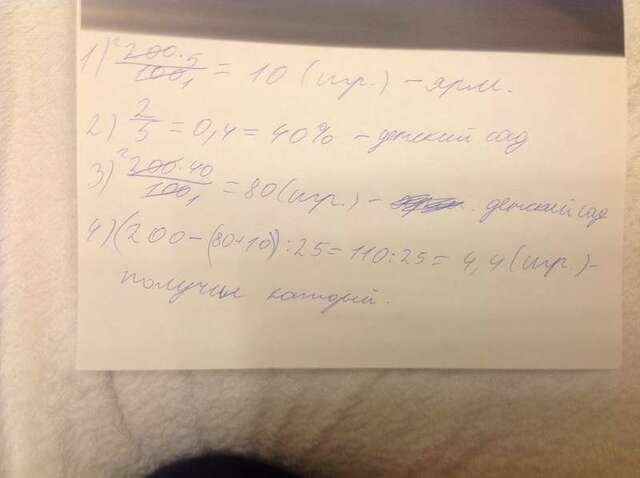 1) 200·5/100 = 10 (игр.) – ярм.
2) 2/5 = 0,4 = 40% – детский сад
3) 200·40/100 = 80 (игр.) – детский сад
4) (200-(80+10)):25=110:25=4,4 (игр.)-
получил каждый.